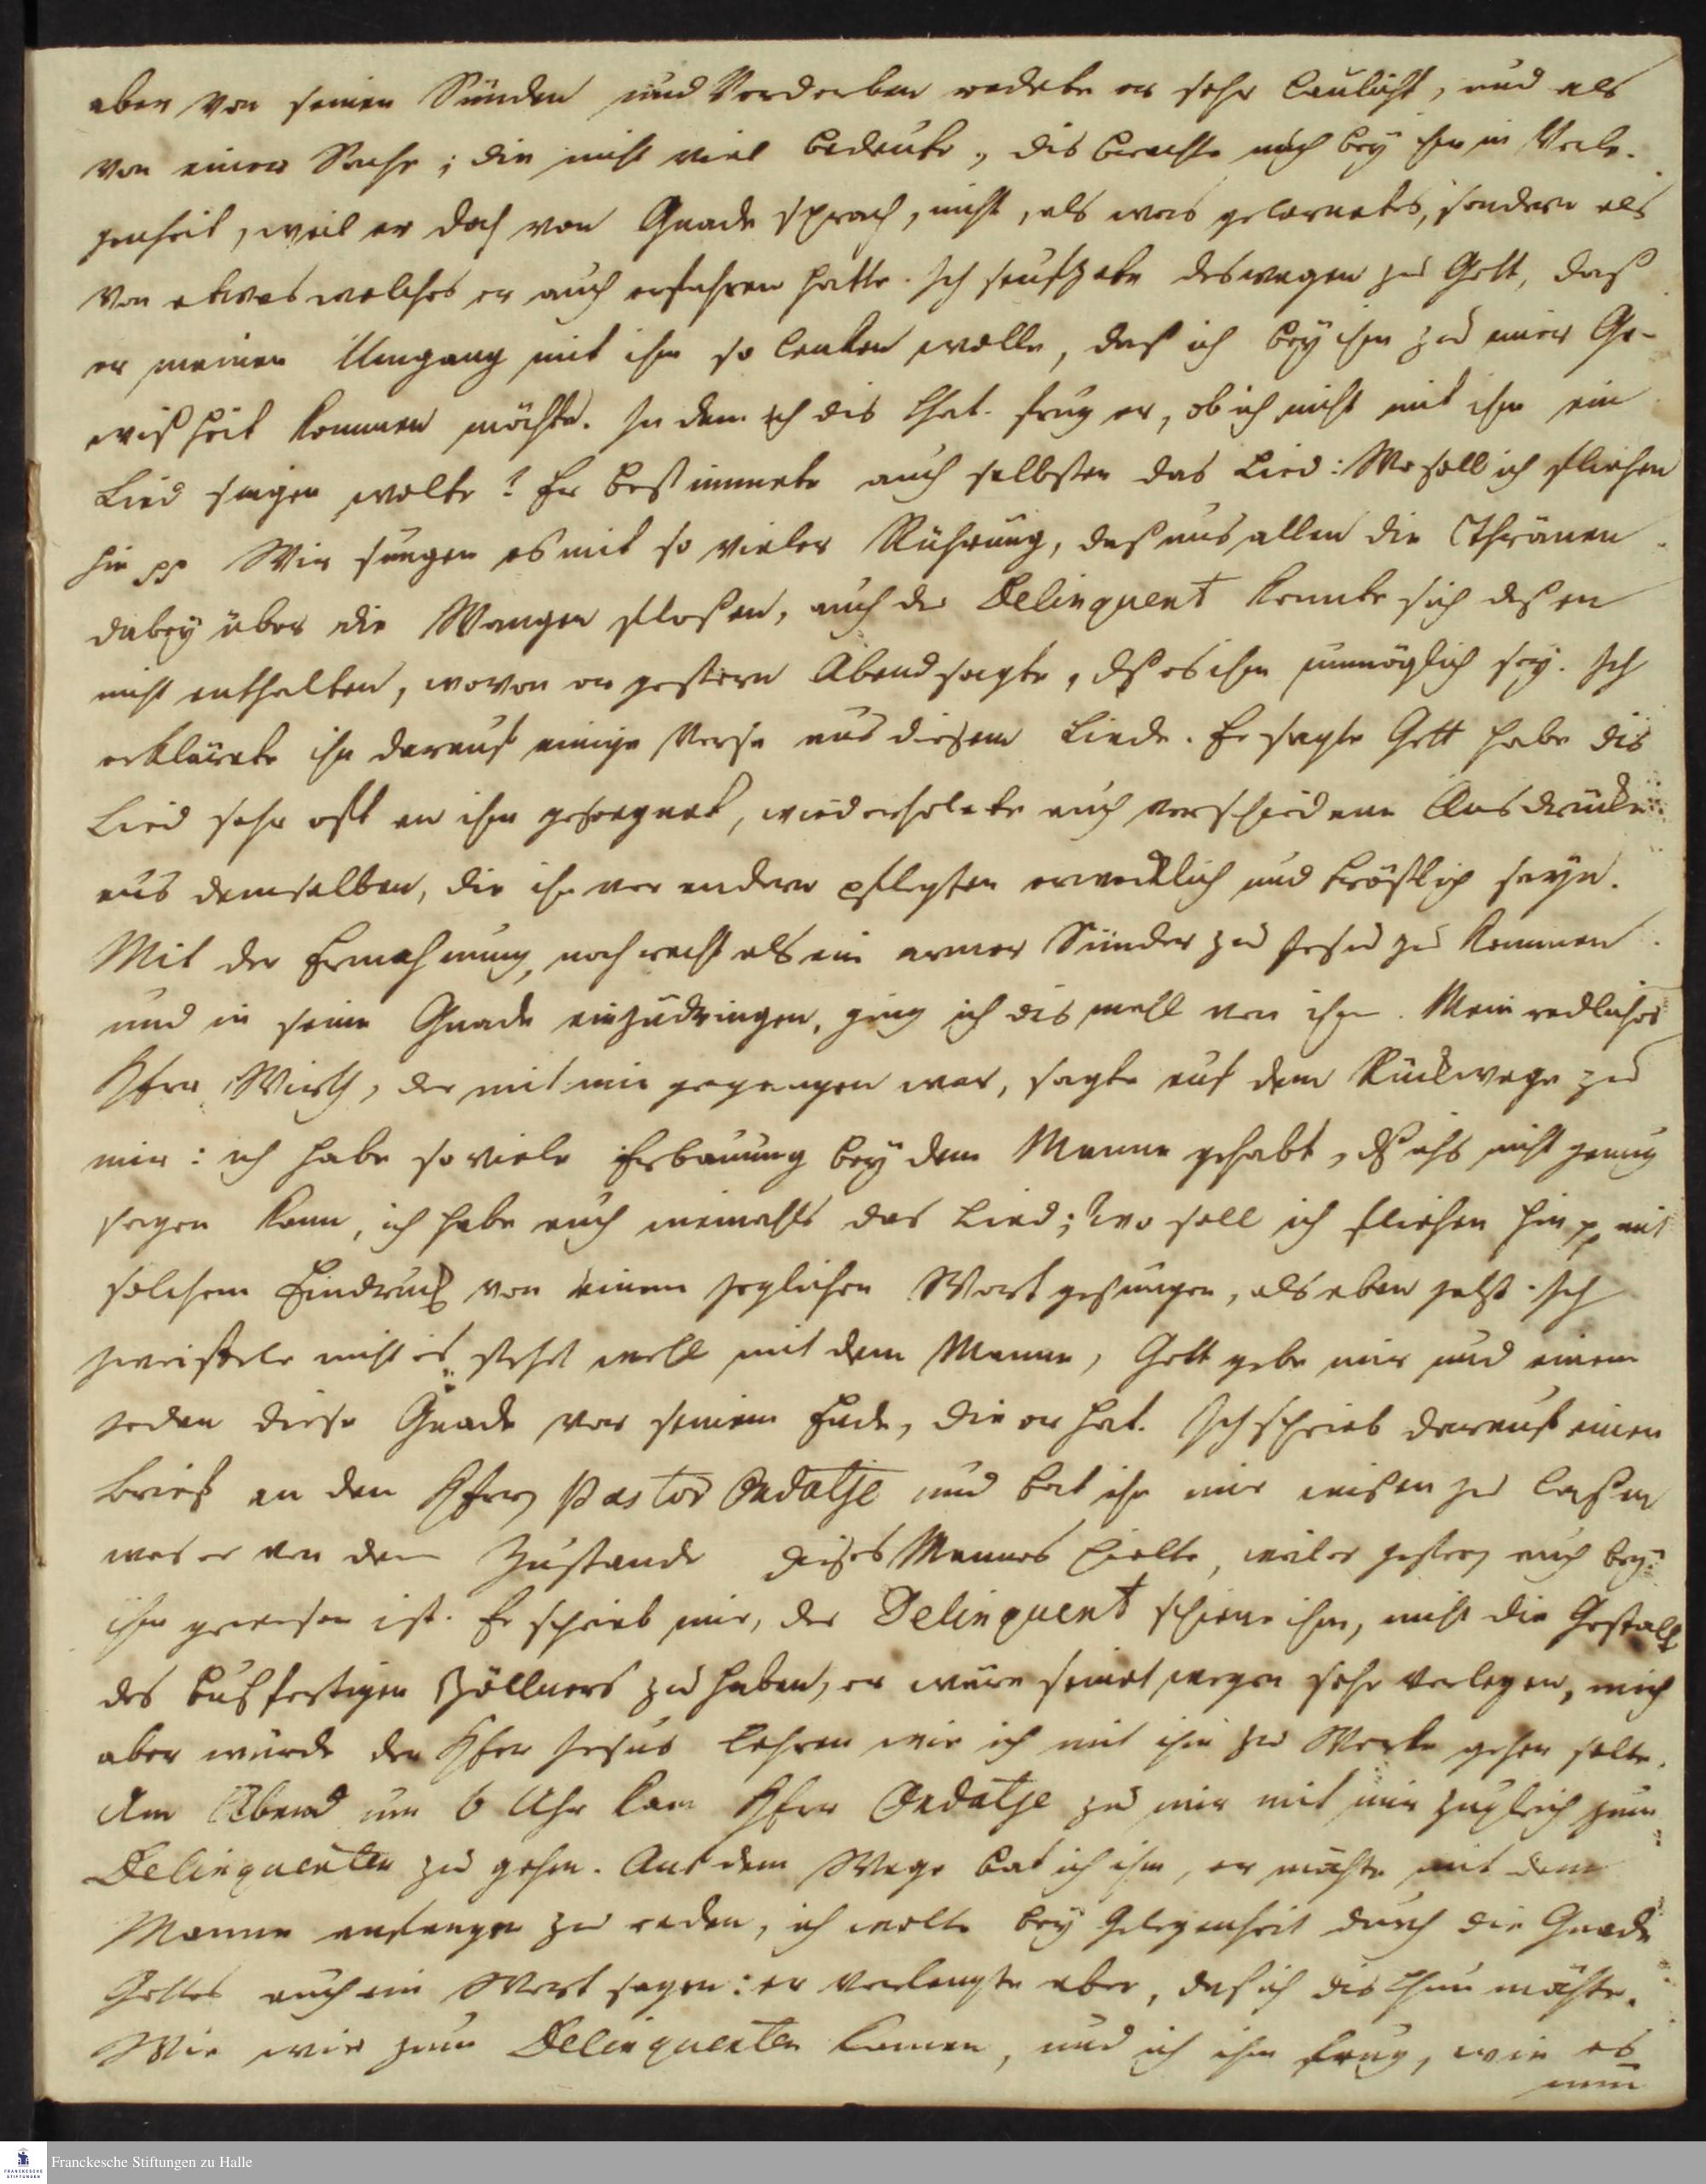 aber von seinen Sünden und Verderben redete er sehr laulicht, und als
von einer Sache; die nicht viel bedeute, dis brachte mich bey ihm in Verle-
genheit, weil er doch von Gnade sprach, nicht, als was gelerntes, sondern als
von etwas welches er auch erfahren hatte. Ich seufzete deswegen zu Gott, daß
er meinen Umgang mit ihm so lenken wolle, daß ich bey ihm zu einer Ge-
wißheit kommen möchte. In dem ich dis that. frug er, ob ich nicht mit ihm ein
Lied singen wolte? Er bestimmete auch selbsten das Lied: Wo soll ich fliehen
hin pp Wir sungen es mit so vieler Rührung, daß uns allen die Thränen
dabey über die Wangen floßen, auch der Delinquent konnte sich deßen
nicht enthalten, wovon er gestern Abend sagte, dß es ihm unmöglich sey. Ich
erklärete ihm darauf einige Verse aus diesem Liede. Er sagte Gott habe dis
Lied sehr oft an ihm gesegnet, wiederholete auch verschiedene Ausdrücke
aus demselben, die ihm vor andern pflegten erwecklich und tröstlich seyn.
Mit der Ermahnung, noch recht als ein armer Sünder zu Jesu zu kommen
und in seine Gnade einzudringen, ging ich dis mahl von ihm. Mein redlicher
Herr Wirth, der mit mir gegangen war, sagte auf dem Rückwege zu
mir: ich habe so viele Erbauung bey dem Manne gehabt, dß ichs nicht genug
sagen kann, ich habe auch niemahls das Lied; Wo soll ich fliehen hin pp mit
solchem Eindruck von einem jeglichen Wort gesungen, als eben jetzt. Ich
zweifele nicht es stehet wohl mit dem Manne, Gott gebe mir und einem
jeden diese Gnade vor seinem Ende, die er hat. Ich schrieb darauf einen
Brief an den Herrn Pastor Ondatje und bat ihn mir wißen zu laßen
was er von dem Zustande dieses Mannes hielte, weil er gestern auch bey
ihm gewesen ist. Er schrieb mir, der Delinquent schiene ihm, nicht die Gestalt
des bußfertigen Zöllners zu haben, er wäre seinet wegen sehr verlegen, mich
aber würde der Herr Jesus lehren wie ich mit ihm zu Werke gehen solte.
Am Abend um 6 Uhr kam Herr Ondatje zu mir mit mir zugleich zum
Delinquenten zu gehen. Auf dem Wege bat ich ihn, er möchte mit dem
Manne anfangen zu reden, ich wolte bey Gelegenheit durch die Gnade
Gottes auch ein Wort sagen: er verlangte aber, daß ich dis thun möchte.
Wie wir zum Delinquenten kamen, und ich ihn frug, wie es
nun
Franckesche Stiftungen zu Halle